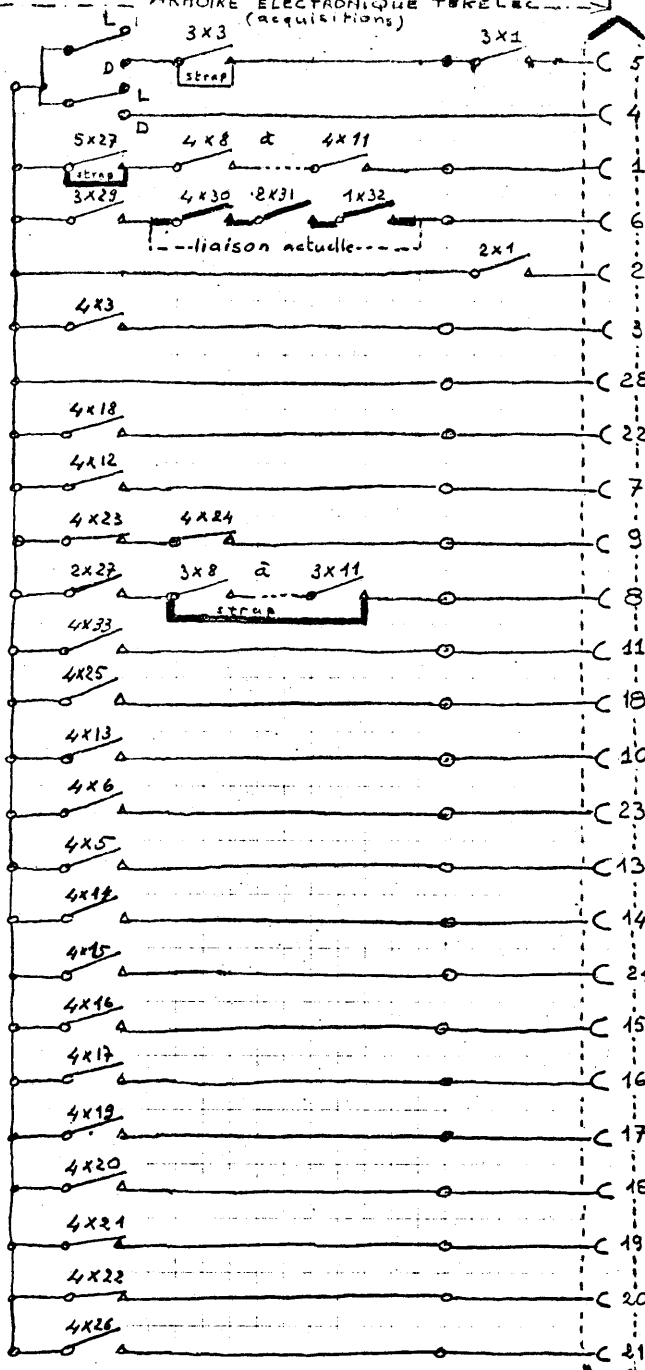 ARMOIRE ELECTRONIQUE TEKELEC
(acquisitions)
L
3x3 3x1
D strap 5
L
D 4
5x27 4x8 à 4x11
strap 1
3x29 4x30 2x31 1x32
6
liaison actuelle
2x1
2
4x3
3
28
4x18
22
4x12
7
4x23 4x24
9
2x27 3x8 à 3x11
strap 8
4x33
11
4x25
18
4x13
10
4x6
23
4x5
13
4x14
14
4x15
4x16
15
4x17
16
4x19
17
4x20
18
4x21
19
4x22
20
4x26
21